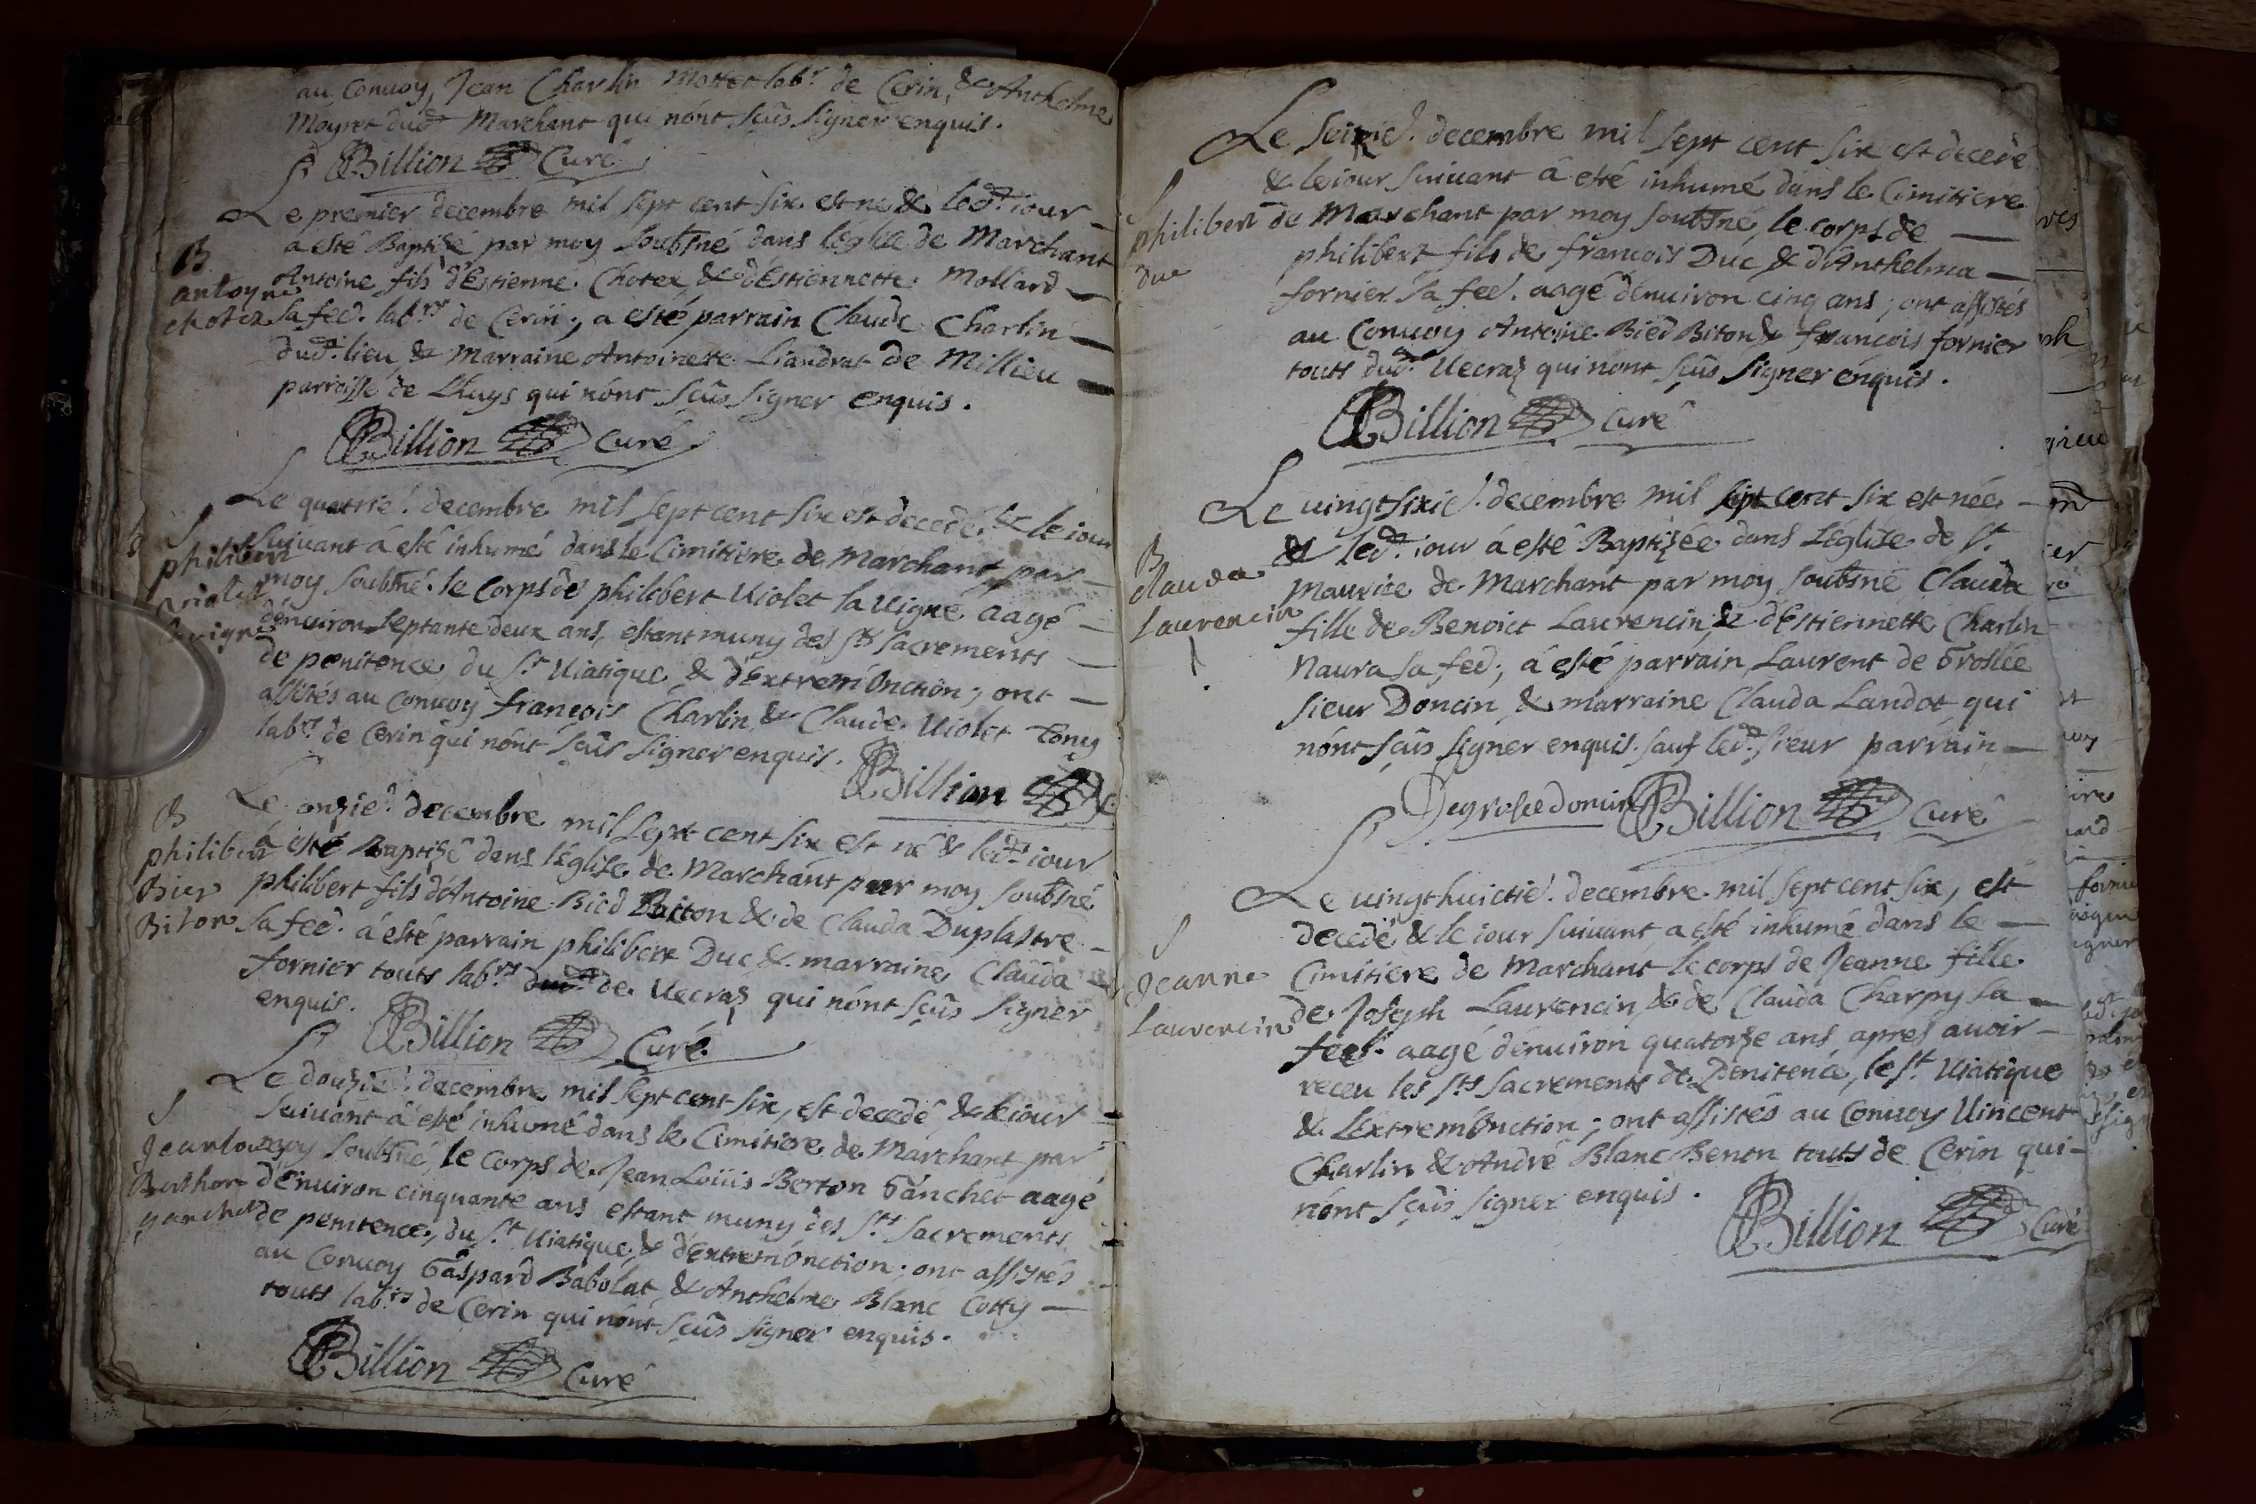 au Convoy, Jean Charlin Mottet labr. de Cerin, & Anthelme
Moyret dud. Marchant qui nónt sçûs signer enquis.
Billion Curé
Le premier decembre mil sept cent six est né & led. iour
a esté Baptizé par moy soubsné dans léglise de Marchant
Antoine fils d'Estienne Chotex & d'Estiennette Mollard
sa feé. labrs de Cerin; a esté parrain Claude Charlin
dud. lieu & Marraine Antoinette Liaudrat de Millieu
parroisse de Lhuys qui nónt sçûs signer enquis.
B
antoyne
chotex
Billion Curé
Le quatrié. decembre mil sept cent six est decedé & le iour
suivant á esté inhumé dans le Cimitiere de Marchant par
moy soubsné le Corps de philibert Violet la Vigne aagé
dénuiron septante deux ans, estant muny des sts sacrements
de penitence, du st Viatique & d'Extremónction; ont
assités au Convoy françois Charlin & Claude Violet Tony
labrs de Cerin qui nónt sçûs signer enquis.
S
philibert
violet
la vigne
Billion
Le onzié. decembre mil sept cent six est né & led. iour
á esté Baptizé dans léglise de Marchant par moy soubsné
philibert fils d'Antoine Bied Biton & de Clauda Duplastre
sa feé. á esté parrain philibert Duc & marraine Clauda
fornier touts labrs de Vecraz qui nónt sçûs signer
enquis.
B
philibert
Bier
Biton
Billion Curé
Le douzié. decembre mil sept cent six, est decedé & le iour
suivant á esté inhumé dans le Cimitiere de Marchant par
moy soubsné le Corps de Jean Loüis Berton Gánchet aagé
dénuiron cinquante ans estant muny des sts sacrements
de penitence, du st Viatique, & d'extremónction; ont assistés
au Convoy Gaspard Babolat & Anthelme Blanc Cotty
touts labrs de Cerin qui nónt sçûs signer enquis.
S
Jean louis
Berthon
ganchet
Billion Curé
Le seizié. decembre mil sept cent six est decedé
& le iour suivant á esté inhumé dans le Cimitiere
de Marchant par moy soubsné le corps de
philibert fils de françois Duc & d'Anthelma
fornier sa feé. aagé dénuiron cinq ans; ont assistés
au Convoy Antoine Bied Biton & françois fornier
touts dud. Vecraz qui nónt sçûs signer énquis.
S
philibert
duc
Billion Curé
Le vingtsixié. decembre mil sept cent six est née
& led. iour á esté Baptizée dans L'église de st
Maurice de Marchant par moy soubsné Clauda
fille de Benoict Laurencin & d'Estiennette Charlin
Naura sa feé; á esté parrain Laurent de Groslée
sieur Doncin & marraine Clauda Landot qui
nónt sçûs signer enquis. sauf led. sieur parrain
B
Clauda
Laurencin
Billion Curé
Le vingthuictié. decembre mil sept cent six, est
decedé & le iour suivant a esté inhumé dans le
Cimitiere de Marchant le corps de Jeanne fille
de Joseph Laurencin & de Clauda Charpy sa
feé. aagé dénuiron quatorze ans apres avoir
receu les sts sacrements de Penitence, le st Viatique
& L'extremónction; ont assistés au Convoy Vincent
Charlin & André Blanc Benon touts de Cerin qui
nónt sçûs signer enquis.
S
Jeanne
Laurencin
Billion Curé